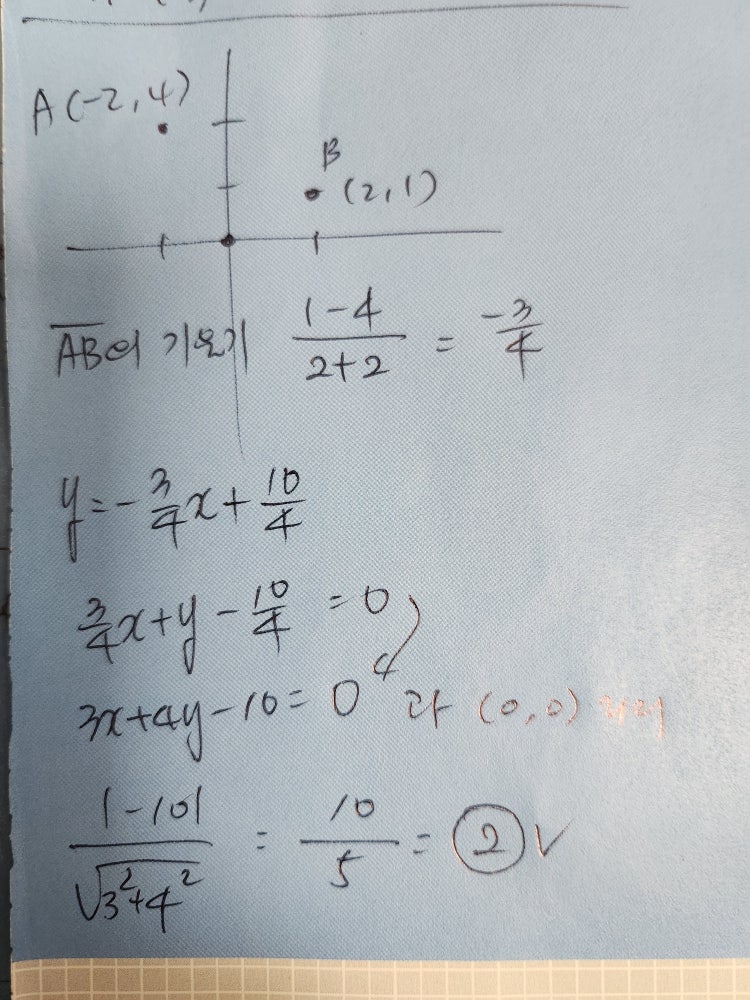 A(-2, 4)
B
(2, 1)
AB의 기울기 (1-4)/(2+2) = -3/4
y = -3/4x + 10/4
3/4x + y - 10/4 = 0
4
3x+4y-10=0 과 (0,0) 거리
|-10|/√(3²+4²) = 10/5 = 2 V